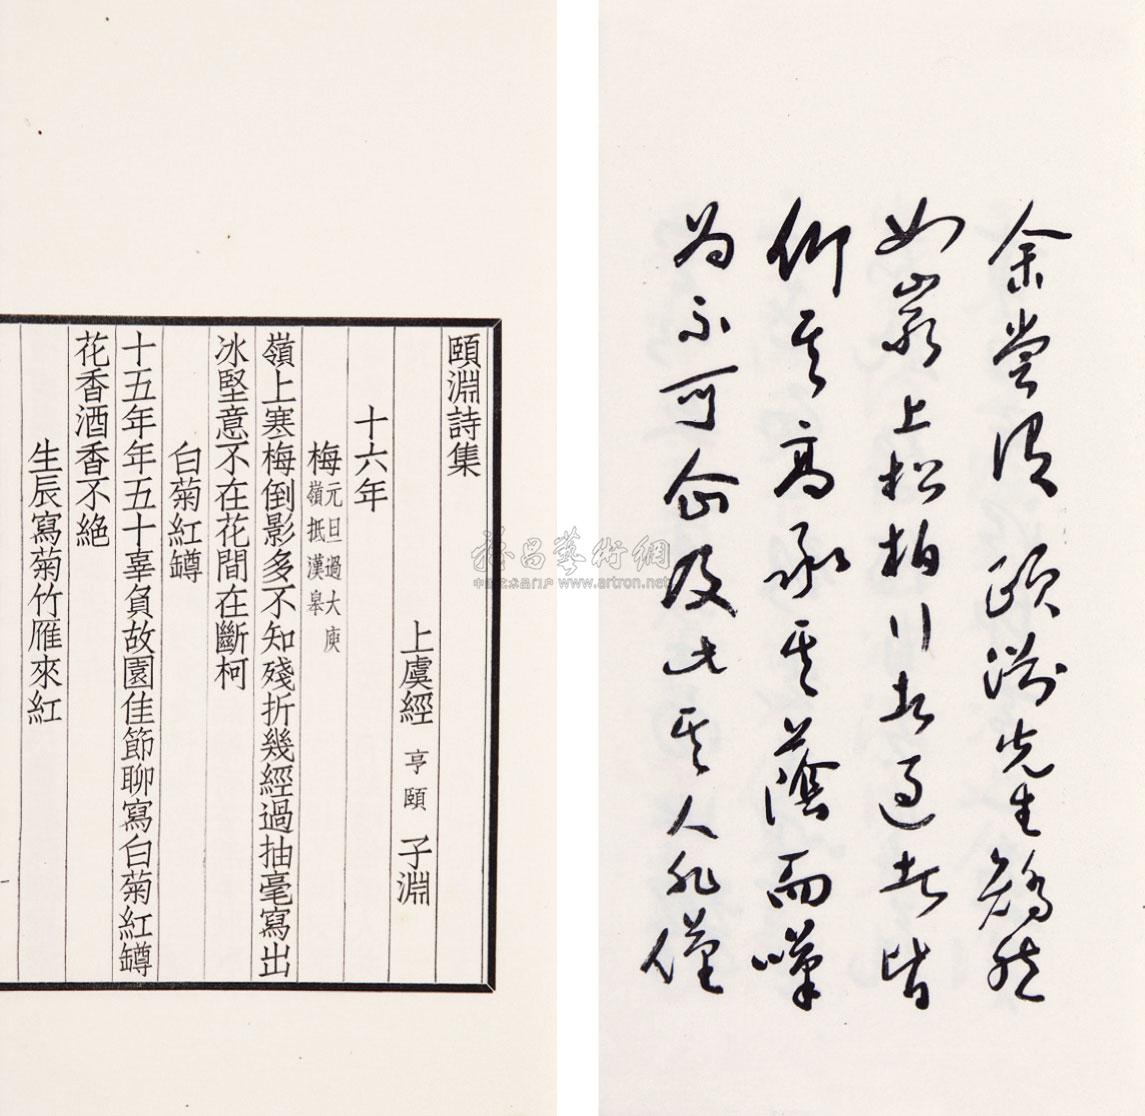 余嘗謂頤淵先生矯然
如巖上松柏行者過者皆
仰其高承其蔭而嘆
為不可企及此其人非僅
頤淵詩集
上虞經亨頤子淵
十六年
梅元旦過大庾嶺抵漢皋
嶺上寒梅倒影多不知殘折幾經過抽毫寫出
冰堅意不在花間在斷柯
白菊紅罇
十五年年五十辜負故園佳節聊寫白菊紅罇
花香酒香不絶
生辰寫菊竹雁來紅
雅昌藝術網
中国艺术品门户 www.artron.net